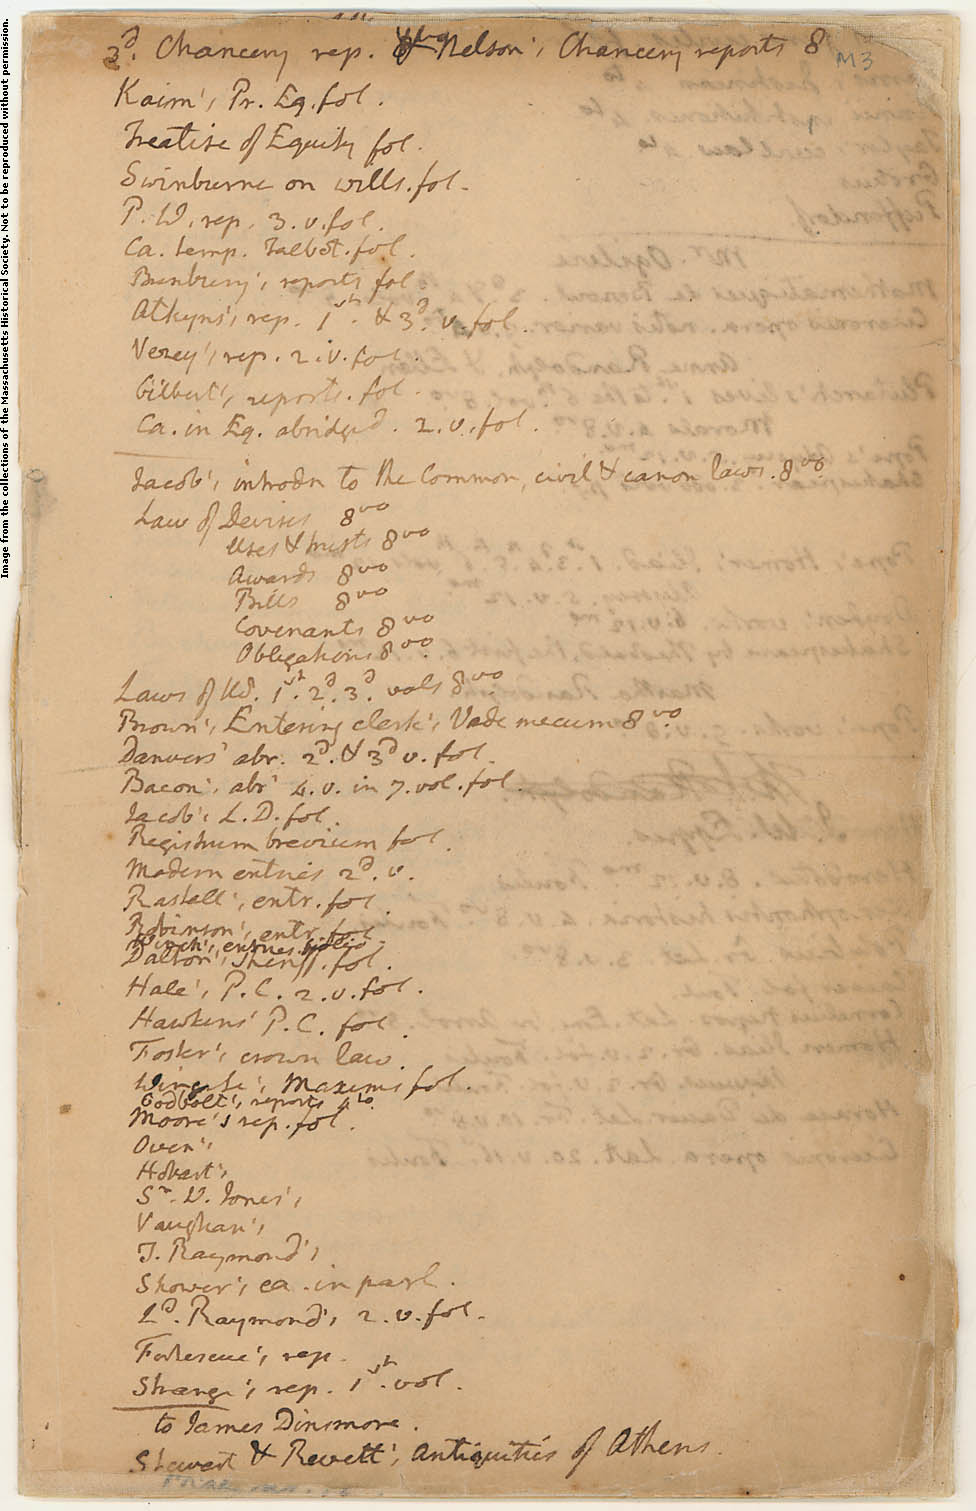 3d. Chancery rep. Nelson's Chancery reports 8
M3
Kaim's Pr. Eq. fol.
Treatise of Equity fol.
Swinburne on wills. fol.
P. W. rep. 3. v. fol.
Ca. temp. Talbot. fol.
Bunbury's reports fol
Atkyns's rep. 1st. & 3d. v. fol.
Vezey's rep. 2. v. fol.
Gilbert's reports. fol.
Ca. in Eq. abridged. 2. v. fol.
Jacob's introdn to the Common, civil & canon laws. 8vo
Law of Devises 8vo
Uses & trusts 8vo
Awards 8vo
Bills 8vo
Covenants 8vo
Obligations 8vo.
Laws of 1st. 2d. 3d. vols 8vo
Brown's Entering clerk's Vade mecum 8vo
Danvers' abr. 2d. & 3d v. fol.
Bacon's abr 4. v. in 7. vol. fol.
Jacob's L. D. fol.
Registrum brevium fol.
Modern entries 2d. v.
Rastall's entr. fol.
Robinson's entr. fol
Winch's entries. folio.
Dalton's Sheriff. fol.
Hale's P. C. 2. v. fol.
Hawkins' P. C. fol.
Foster's crown law.
Wingate's Maxims fol.
Godbolt's reports 4to.
Moore's rep. fol.
Owen's
Hobart's
Sr. W. Jones's
Vaughan's
T. Raymond's
Shower's ca. in parl.
Ld. Raymond's 2. v. fol.
Fortescue's rep.
Strange's rep. 1st. vol.
to James Dinsmore.
Stewart & Revett's Antiquities of Athens.
Image from the collections of the Massachusetts Historical Society. Not to be reproduced without permission.